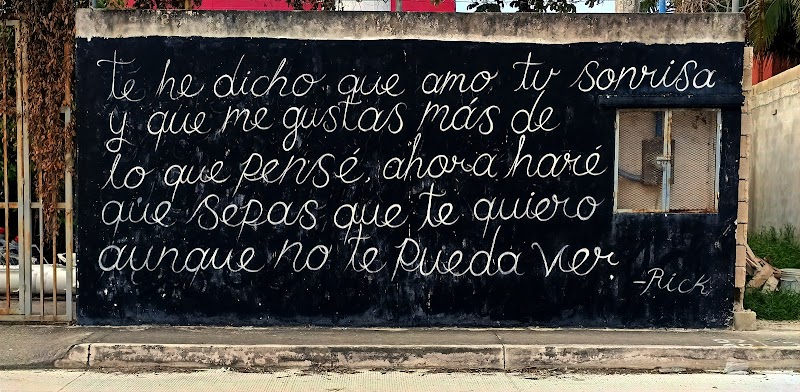 te he dicho que amo tu sonrisa
y que me gustas más de
lo que pensé, ahora haré
que sepas que te quiero
aunque no te pueda ver.
-Rick